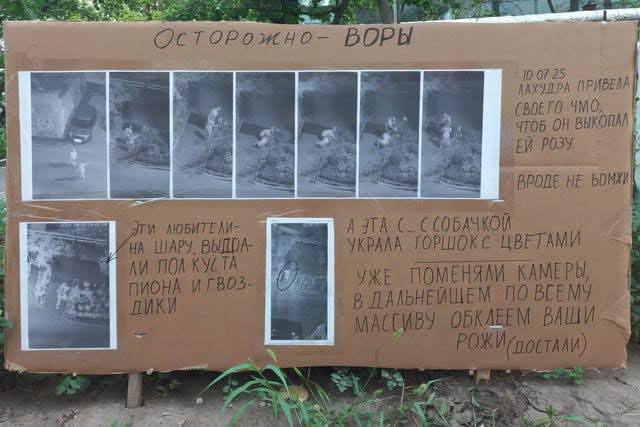 Осторожно - ВОРЫ
10 07 25
ЛАХУДРА ПРИВЕЛА
СВОЕГО ЧМО,
ЧТОБ ОН ВЫКОПАЛ
ЕЙ РОЗУ
ВРОДЕ НЕ БОМЖИ
ЭТИ ЛЮБИТЕЛИ-
НА ШАРУ, ВЫДРА-
ЛИ ПОЛ КУСТА
ПИОНА И ГВОЗ-
ДИКИ
А ЭТА С_ С СОБАЧКОЙ
УКРАЛА ГОРШОК С ЦВЕТАМИ
УЖЕ ПОМЕНЯЛИ КАМЕРЫ,
В ДАЛЬНЕЙШЕМ ПО ВСЕМУ
МАССИВУ ОБКЛЕЕМ ВАШИ
РОЖИ (ДОСТАЛИ)